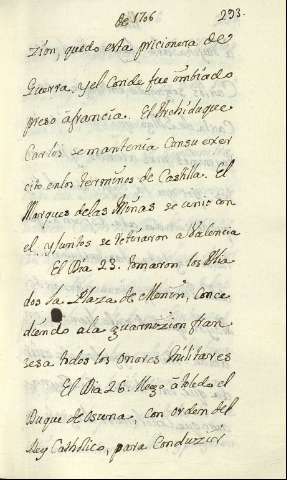 de 1706 293.
zion, quedo esta pricionera de
Guerra, y el Conde fue imbiado
preso à francia. El Archiduque
Carlos se mantenia con su exer
cito en los terminos de Castilla. El
Marques de las Minas se unió con
el, y juntos se retiraron a Valencia
El Dia 23. tomaron los Alia
dos la Plaza de Menin, conce
diendo a la guarnizion fran
sesa todos los onores Militares
El Dia 26. llego à toledo el
Duque de Osuna, con orden del
Rey Catholico, para Conduzir